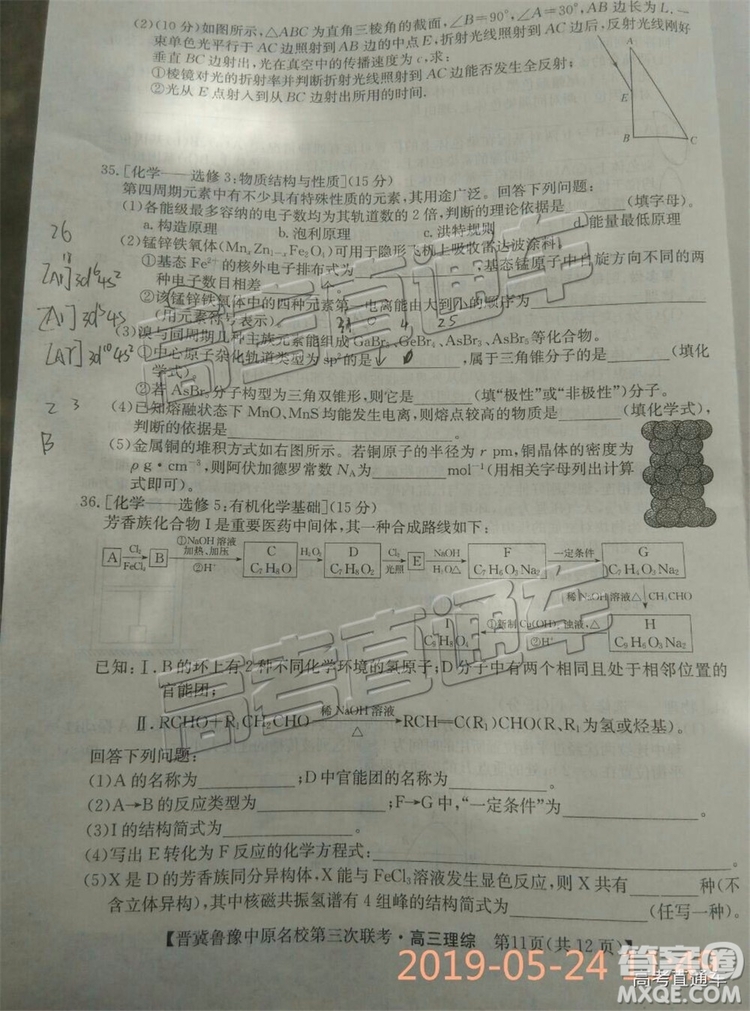 (2)(10分)如图所示,△ABC为直角三棱角的截面,∠B=90°,∠A=30°,AB边长为L.一
束单色光平行于AC边照射到AB边的中点E,折射光线照射到AC边后,反射光线刚好
垂直BC边射出,光在真空中的传播速度为c,求:
①棱镜对光的折射率并判断折射光线照射到AC边能否发生全反射;
②光从E点射入到从BC边射出所用的时间.
A
E
B
C
35.[化学——选修3:物质结构与性质](15分)
第四周期元素中有不少具有特殊性质的元素,其用途广泛。回答下列问题:
(1)各能级最多容纳的电子数均为其轨道数的2倍,判断的理论依据是 (填字母)。
a.构造原理 b.泡利原理 c.洪特规则 d.能量最低原理
(2)锰锌铁氧体(MnxZn1-xFe2O4)可用于隐形飞机上吸收雷达波涂料。
①基态Fe2+的核外电子排布式为 ,基态锰原子中自旋方向不同的两
种电子数目相差 。
②该锰锌铁氧体中的四种元素第一电离能由大到小的顺序为
(用元素符号表示)。
(3)溴与同周期几种主族元素能组成GaBr3、GeBr4、AsBr3、AsBr5等化合物。
①中心原子杂化轨道类型为sp2的是 ,属于三角锥分子的是 (填化
学式)。
②若AsBr5分子构型为三角双锥形,则它是 (填“极性”或“非极性”)分子。
(4)已知熔融状态下MnO、MnS均能发生电离,则熔点较高的物质是 (填化学式),
判断的依据是 。
(5)金属铜的堆积方式如右图所示。若铜原子的半径为r pm,铜晶体的密度为
ρ g·cm-3,则阿伏加德罗常数NA为 mol-1(用相关字母列出计算
式即可)。
26
[Ar]3d64s2
[Ar]3d54s
[Ar]3d104s2
23
B
36.[化学——选修5:有机化学基础](15分)
芳香族化合物I是重要医药中间体,其一种合成路线如下:
A Cl2 FeCl3 B ①NaOH溶液 加热、加压 ②H+ C C7H8O H2O2 D C7H8O2 Cl2 光照 E NaOH H2O△ F C7H6O3Na2 一定条件 G C7H4O3Na2
稀NaOH溶液△ CH3CHO
I C9H8O4 ①新制Cu(OH)2浊液,△ ②H+ H C9H6O3Na2
已知:Ⅰ.B的环上有2种不同化学环境的氢原子;D分子中有两个相同且处于相邻位置的
官能团;
Ⅱ.RCHO+R1CH2CHO 稀NaOH溶液 △ RCH=C(R1)CHO(R、R1为氢或烃基)。
回答下列问题:
(1)A的名称为 ;D中官能团的名称为 。
(2)A→B的反应类型为 ;F→G中,“一定条件”为 。
(3)I的结构简式为 。
(4)写出E转化为F反应的化学方程式: 。
(5)X是D的芳香族同分异构体,X能与FeCl3溶液发生显色反应,则X共有 种(不
含立体异构),其中核磁共振氢谱有4组峰的结构简式为 (任写一种)。
【晋冀鲁豫中原名校第三次联考·高三理综 第11页(共12页)】
2019-05-24
高考直通车
答案圈
MXQE.COM
高考直通车
高考直通车